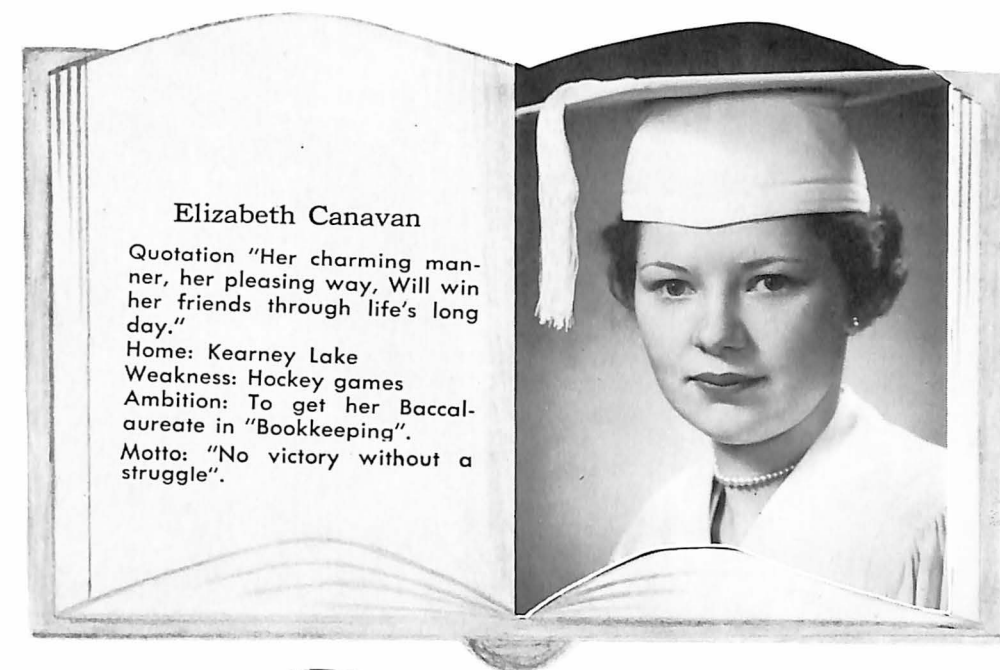 Elizabeth Canavan
Quotation "Her charming man-
ner, her pleasing way, Will win
her friends through life's long
day."
Home: Kearney Lake
Weakness: Hockey games
Ambition: To get her Baccal-
aureate in "Bookkeeping".
Motto: "No victory without a
struggle".